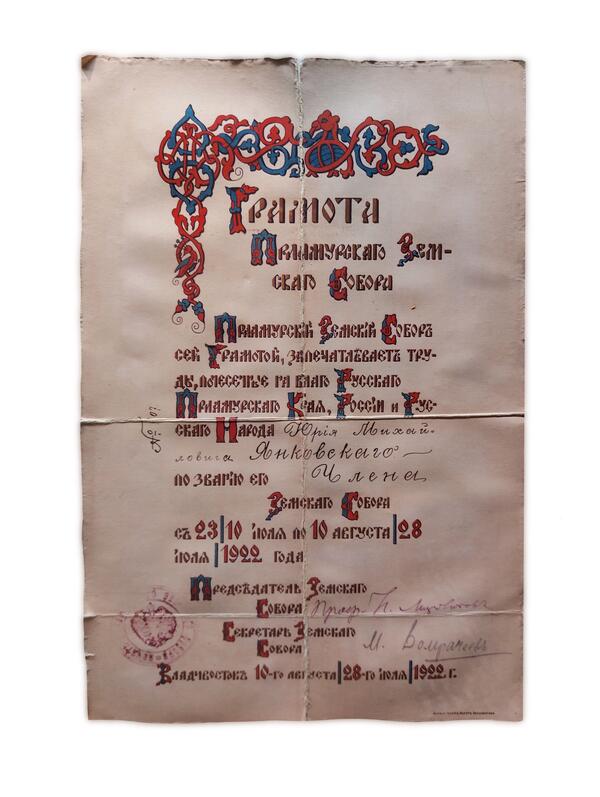 Грамота
Приамурскаго Зем-
скаго Собора
Приамурскій Земскій Соборъ
сей Грамотой, запечатлѣваетъ тру-
ды, понесенные на благо Русскаго
Приамурскаго Края, Россіи и Рус-
скаго Народа Юрія Михай-
ловича Янковскаго
по званію его Члена
Земскаго Собора
съ 23/10 іюля по 10 августа/28
іюля/1922 года
Предсѣдатель Земскаго
Собора Проф. Н.
Секретарь Земскаго
Собора М.
Владивостокъ 10-го августа/28-го іюля/1922 г.